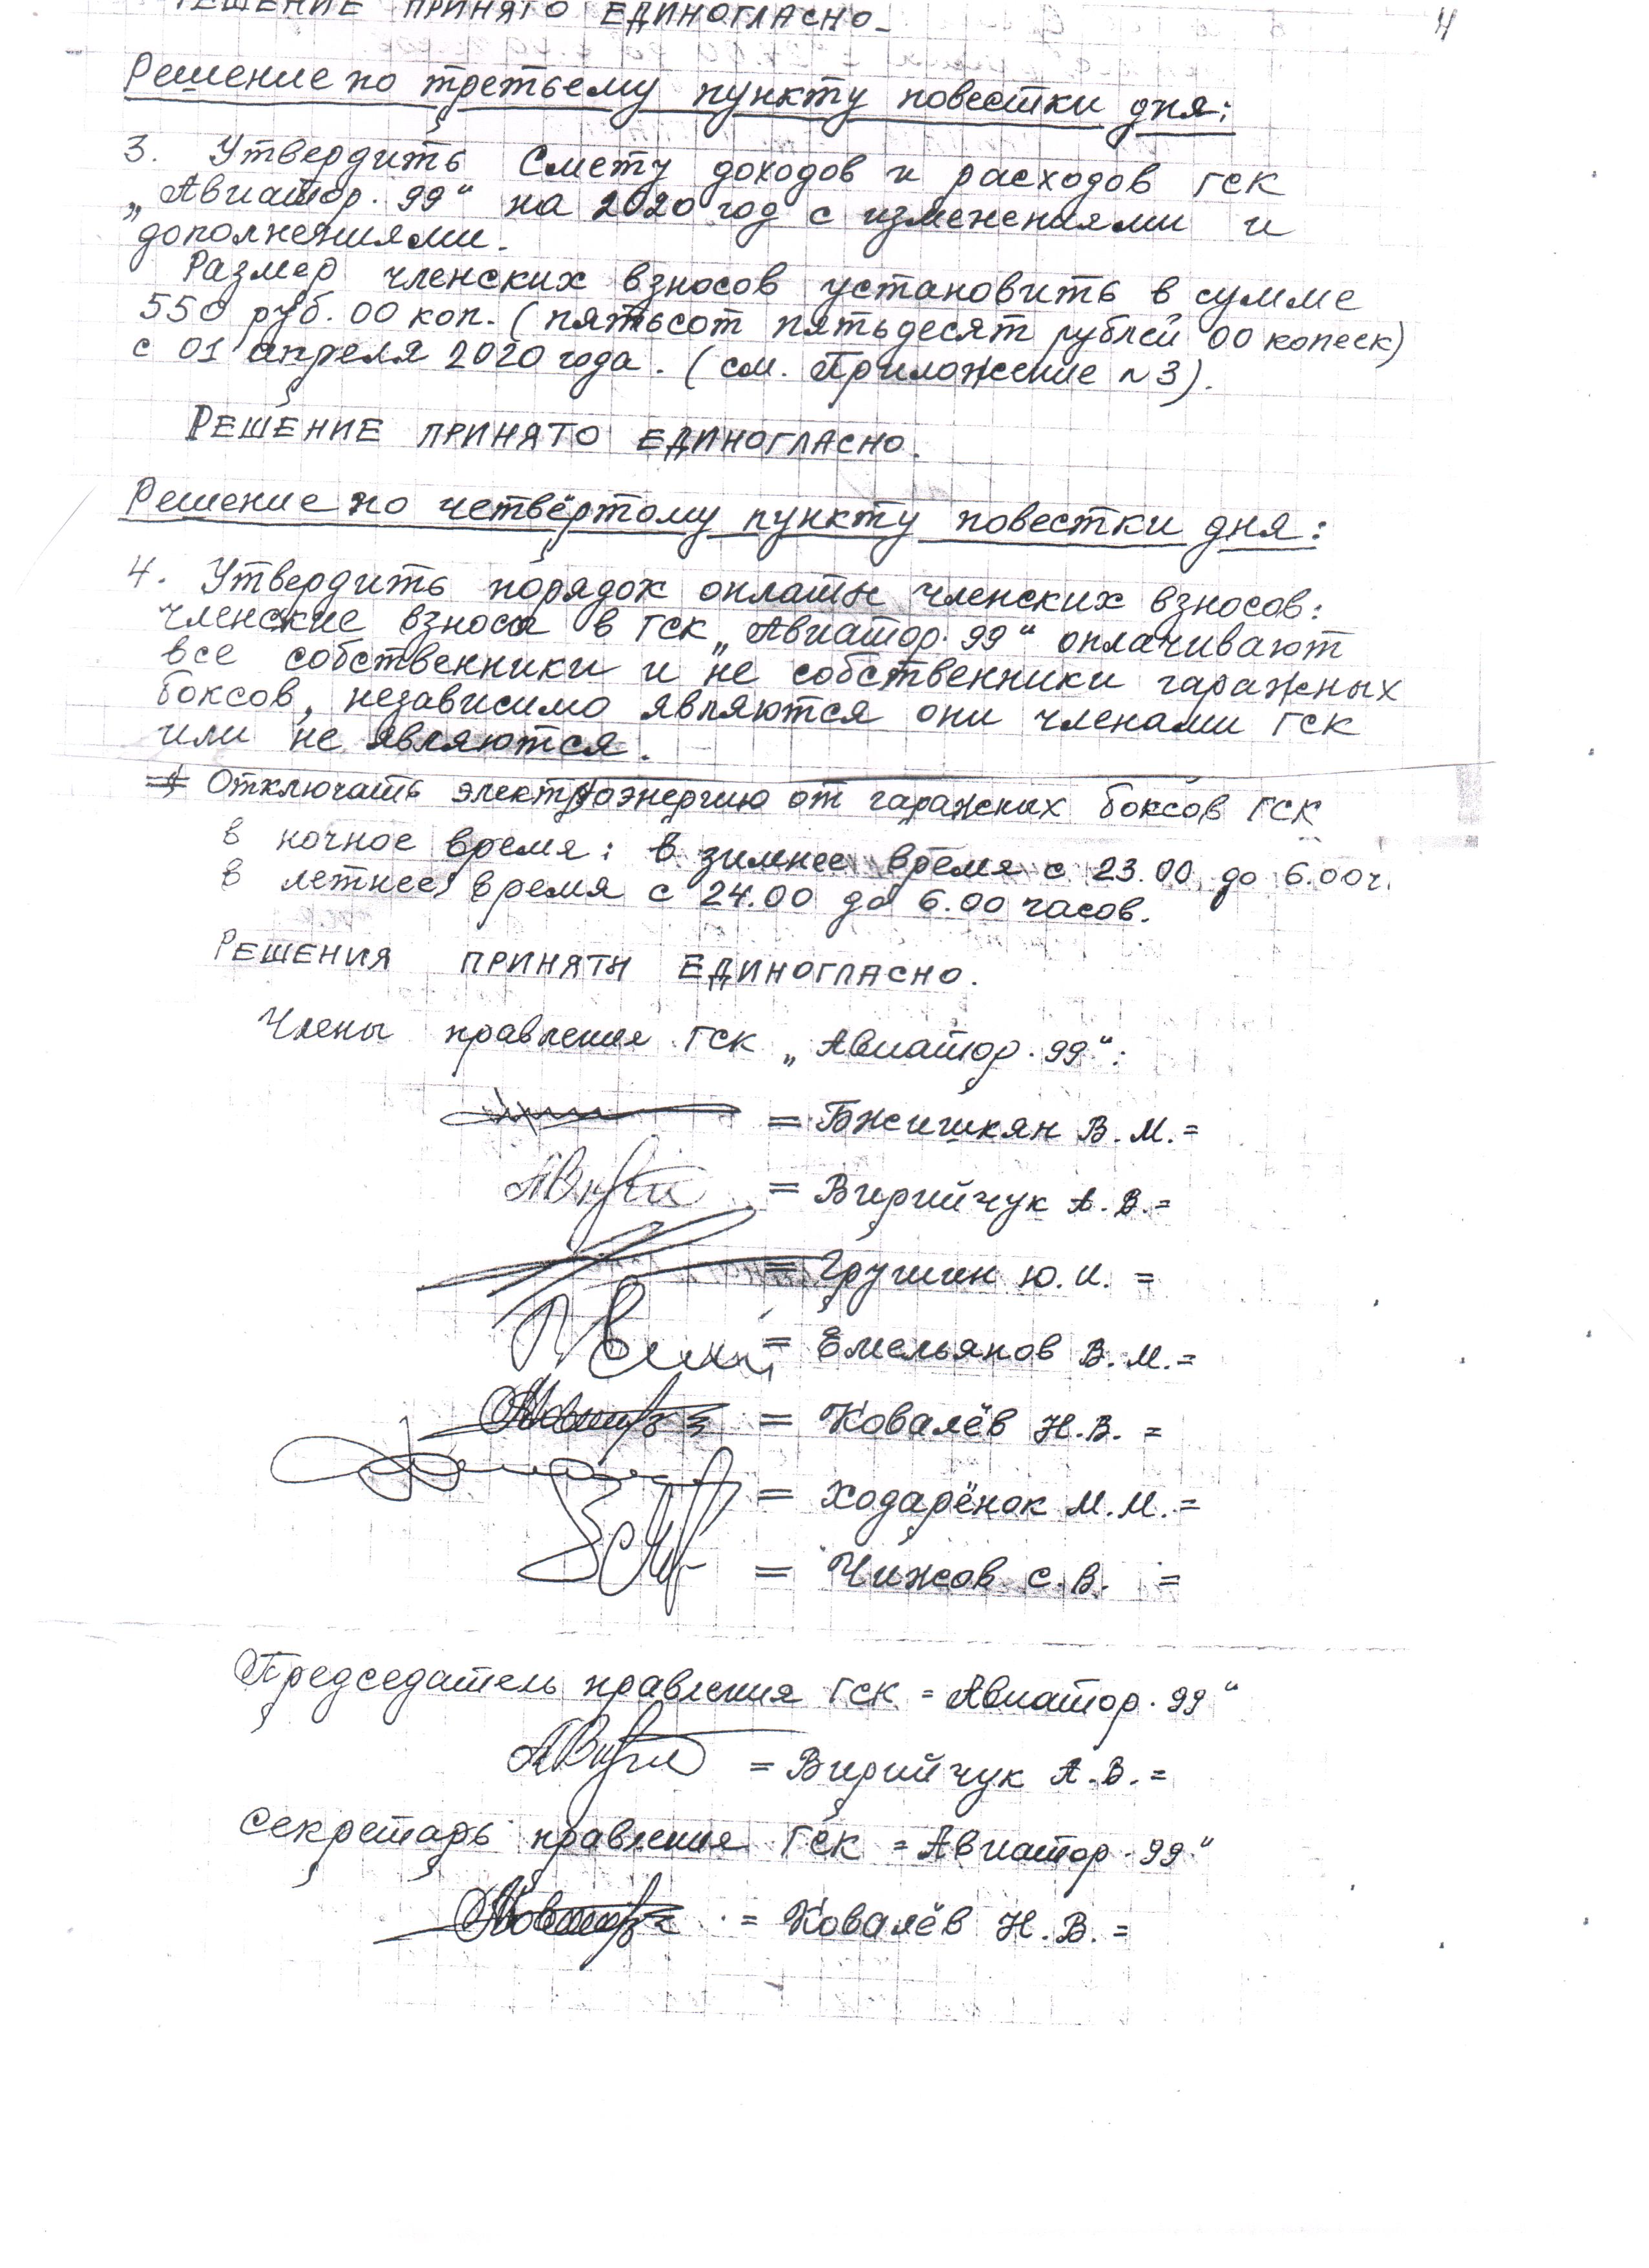 4
РЕШЕНИЕ ПРИНЯТО ЕДИНОГЛАСНО.
Решение по третьему пункту повестки дня:
3. Утвердить Смету доходов и расходов ГСК
„Авиатор-99“ на 2020 год с изменениями и
дополнениями.
Размер членских взносов установить в сумме
550 руб. 00 коп. (пятьсот пятьдесят рублей 00 копеек)
с 01 апреля 2020 года. (см. Приложение N3).
РЕШЕНИЕ ПРИНЯТО ЕДИНОГЛАСНО.
Решение по четвёртому пункту повестки дня:
4. Утвердить порядок оплаты членских взносов:
членские взносы в ГСК „Авиатор-99“ оплачивают
все собственники и не собственники гаражных
боксов, независимо являются они членами ГСК
или не являются.
Отключать электроэнергию от гаражных боксов ГСК
в ночное время: в зимнее время с 23.00 до 6.00ч.
в летнее время с 24.00 до 6.00 часов.
РЕШЕНИЯ ПРИНЯТЫ ЕДИНОГЛАСНО.
Члены правления ГСК „Авиатор-99“:
= Бжишкян В.М. =
= Вирийчук А.В. =
= Грушин Ю.И. =
= Емельянов В.М. =
= Ковалёв Н.В. =
= Ходарёнок М.М. =
= Чижов С.В. =
Председатель правления ГСК = Авиатор-99“
= Вирийчук А.В. =
Секретарь правления ГСК = Авиатор-99“
= Ковалёв Н.В. =